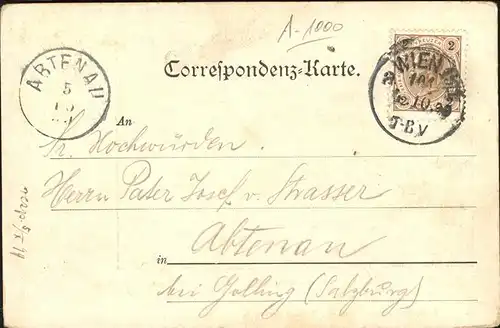 A-1000
2
WIEN
ABTENAU
5
10
Correspondenz-Karte.
An
Sr. Hochwürden.
Herrn Pater Josef v. Strasser
in Abtenau
bei Golling (Salzburg)